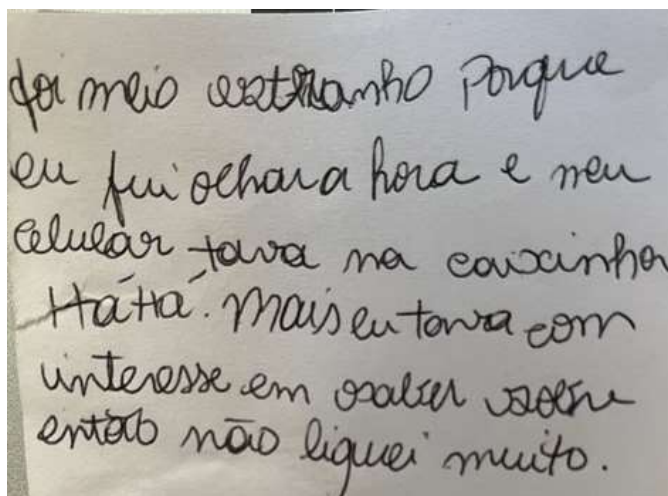 foi meio estranho porque
eu fui olhar a hora e meu
celular tava na caixinha
HáHá. Mais eu tava com
interesse em saber sobre
então não liguei muito.